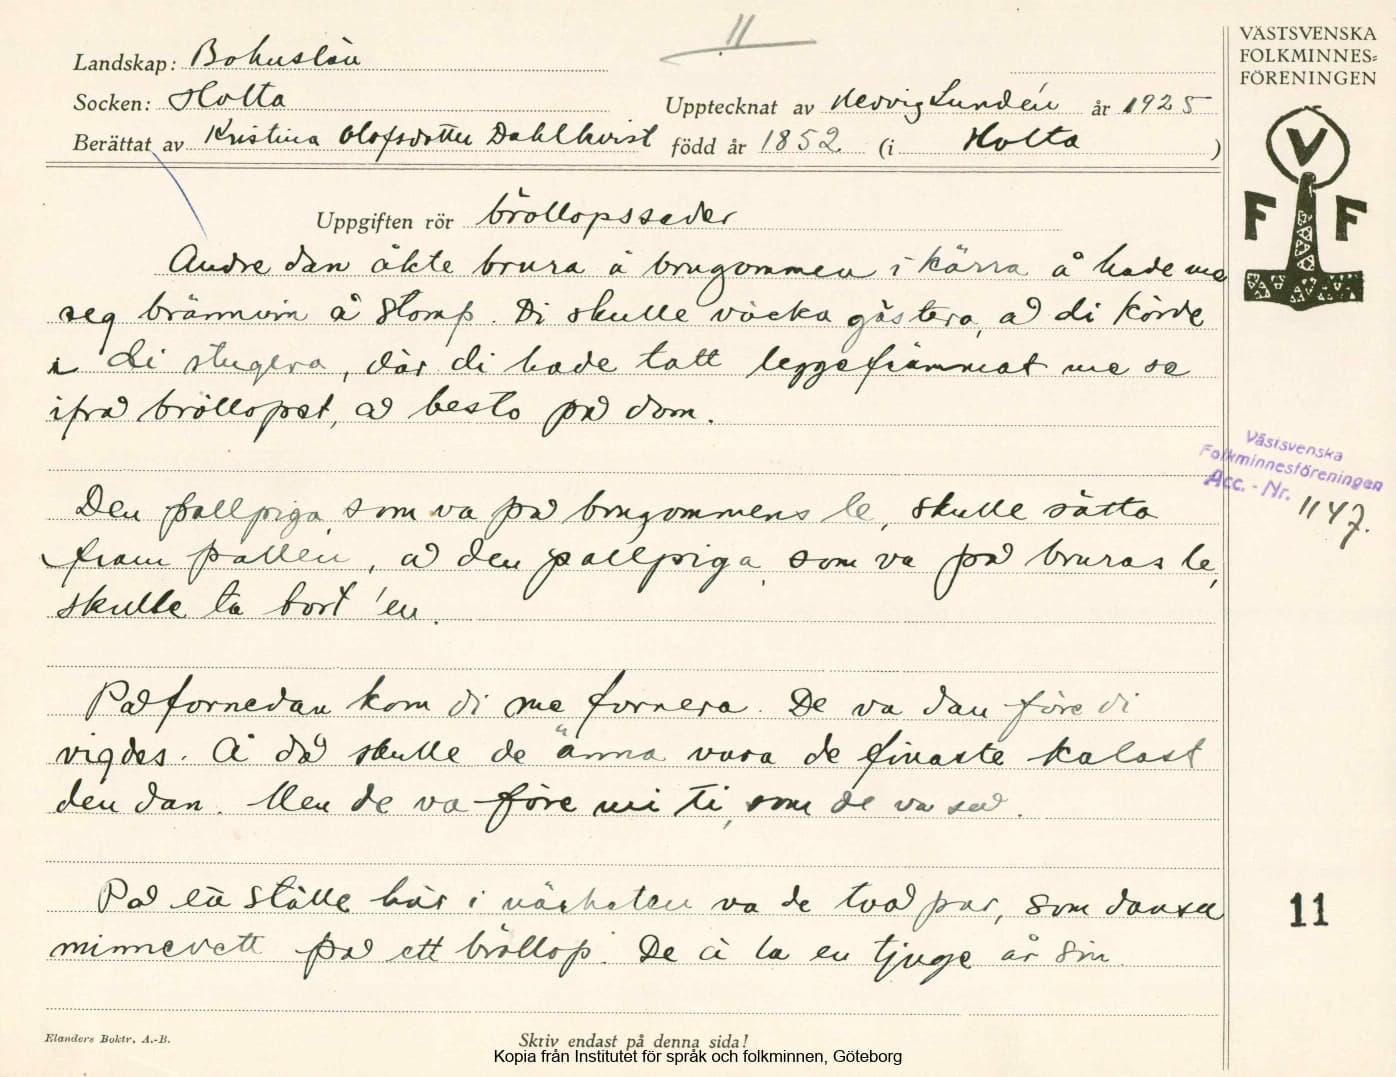 11
VÄSTSVENSKA
FOLKMINNES=
FÖRENINGEN
Landskap: Bohuslän
Socken: Holta
Upptecknat av Hedvig Lundén år 1925
Berättat av Kristina Olofsdotter Dahlkvist född år 1852 (i Holta)
V
F F
Uppgiften rör bröllopsseder
Andre dan åkte brura å brugommen i kärra å hade me
seg brännvin å stomp. Di skulle väcka gästera, å di körde
i di stugera, där di hade tatt leggefrämmat me se
ifrå bröllopet, å besto på dom.
Den pallpiga som va på brugommens le, skulle sätta
fram pallen, å den pallpiga, som va på bruras le,
skulle ta bort 'en.
På fornedan kom di me fornera. De va dan före di
vigdes. Å då skulle de änna vara de finaste kalast
den dan. Men de va före mi ti, som de va så.
På ett ställe här i närheten va de två par, som dansa
minnevett på ett bröllop. De ä la en tjuge år sin
Västsvenska
Folkminnesföreningen
Acc. - Nr. 1147.
11
Elanders Boktr. A.-B.
Skriv endast på denna sida!
Kopia från Institutet för språk och folkminnen, Göteborg